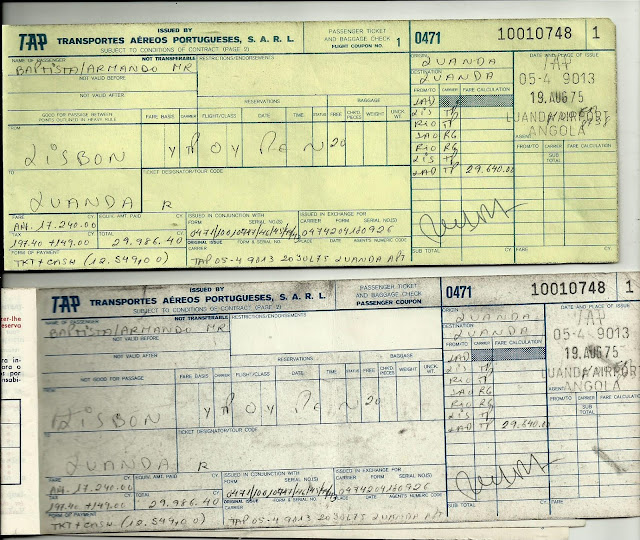 TAP
ISSUED BY
TRANSPORTES AÉREOS PORTUGUESES, S. A. R. L.
SUBJECT TO CONDITIONS OF CONTRACT (PAGE 2)
PASSENGER TICKET
AND BAGGAGE CHECK
FLIGHT COUPON NO. 1
0471
10010748 1
NAME OF PASSENGER
NOT TRANSFERABLE
RESTRICTIONS/ENDORSEMENTS
ORIGIN
DATE AND PLACE OF ISSUE
BAPTISTA/ARMANDO MR
LUANDA
TAP
NOT VALID BEFORE
DESTINATION
LUANDA
05-4 9013
NOT VALID AFTER
FROM/TO CARRIER FARE CALCULATION
19. AUG 75
LUANDA/AIRPORT
ANGOLA
GOOD FOR PASSAGE BETWEEN
POINTS OUTLINED IN HEAVY RULE
RESERVATIONS
BAGGAGE
FARE BASIS CARRIER FLIGHT/CLASS DATE TIME STATUS FREE CHKD. PIECES WEIGHT UNCK. WT.
LAD
LIS TP
RIO TP
SAO RG
RIO RG
LIS TP
LAD TP 29.640.00
FROM/TO CARRIER FARE CALCULATION
SUB TOTAL
FROM
LISBON
Y TP O Y PE N 20
TO
TICKET DESIGNATOR/TOUR CODE
LUANDA R
FARE CY.
AN. 17.240.00
EQUIV. AMT. PAID CY.
ISSUED IN CONJUNCTION WITH
FORM SERIAL NO.(S)
ISSUED IN EXCHANGE FOR
CARRIER FORM SERIAL NO.(S)
TAX
197.40 + 149.00
TOTAL CY.
29,986.40
0474204160926
ORIGINAL ISSUE FORM & SERIAL NO. PLACE DATE AGENTS NUMERIC CODE
FORM OF PAYMENT
TKT + CASH (12.549,00)
TAP 05-4 9013 20JUL75 LUANDA APT
SUB TOTAL CY.
FARE CY.
TAP
ISSUED BY
TRANSPORTES AÉREOS PORTUGUESES, S. A. R. L.
SUBJECT TO CONDITIONS OF CONTRACT (PAGE 2)
PASSENGER TICKET
AND BAGGAGE CHECK
PASSENGER COUPON
0471
10010748 1
NAME OF PASSENGER
NOT TRANSFERABLE
RESTRICTIONS/ENDORSEMENTS
ORIGIN
DATE AND PLACE OF ISSUE
BAPTISTA/ARMANDO MR
LUANDA
TAP
NOT VALID BEFORE
DESTINATION
LUANDA
05-4 9013
NOT VALID AFTER
FROM/TO CARRIER FARE CALCULATION
19. AUG 75
LUANDA/AIRPORT
AGENT
ANGOLA
NOT GOOD FOR PASSAGE
RESERVATIONS
BAGGAGE
FARE BASIS CARRIER FLIGHT/CLASS DATE TIME STATUS FREE CHKD. PIECES WEIGHT UNCK. WT.
LAD
LIS TP
RIO TP
SAO RG
RIO RG
LIS TP
LAD TP 29.640.00
FROM/TO CARRIER FARE CALCULATION
SUB TOTAL
FROM
LISBON
Y TP O Y PE N 20
TO
TICKET DESIGNATOR/TOUR CODE
LUANDA R
FARE CY.
AN. 17.240.00
EQUIV. AMT. PAID CY.
ISSUED IN CONJUNCTION WITH
FORM SERIAL NO.(S)
ISSUED IN EXCHANGE FOR
CARRIER FORM SERIAL NO.(S)
TAX
197.40 + 149.00
TOTAL CY.
29,986.40
0474204160926
ORIGINAL ISSUE FORM & SERIAL NO. PLACE DATE AGENTS NUMERIC CODE
FORM OF PAYMENT
TKT + CASH (12.549,00)
TAP 05-4 9013 20JUL75 LUANDA APT
SUB TOTAL CY.
FARE CY.